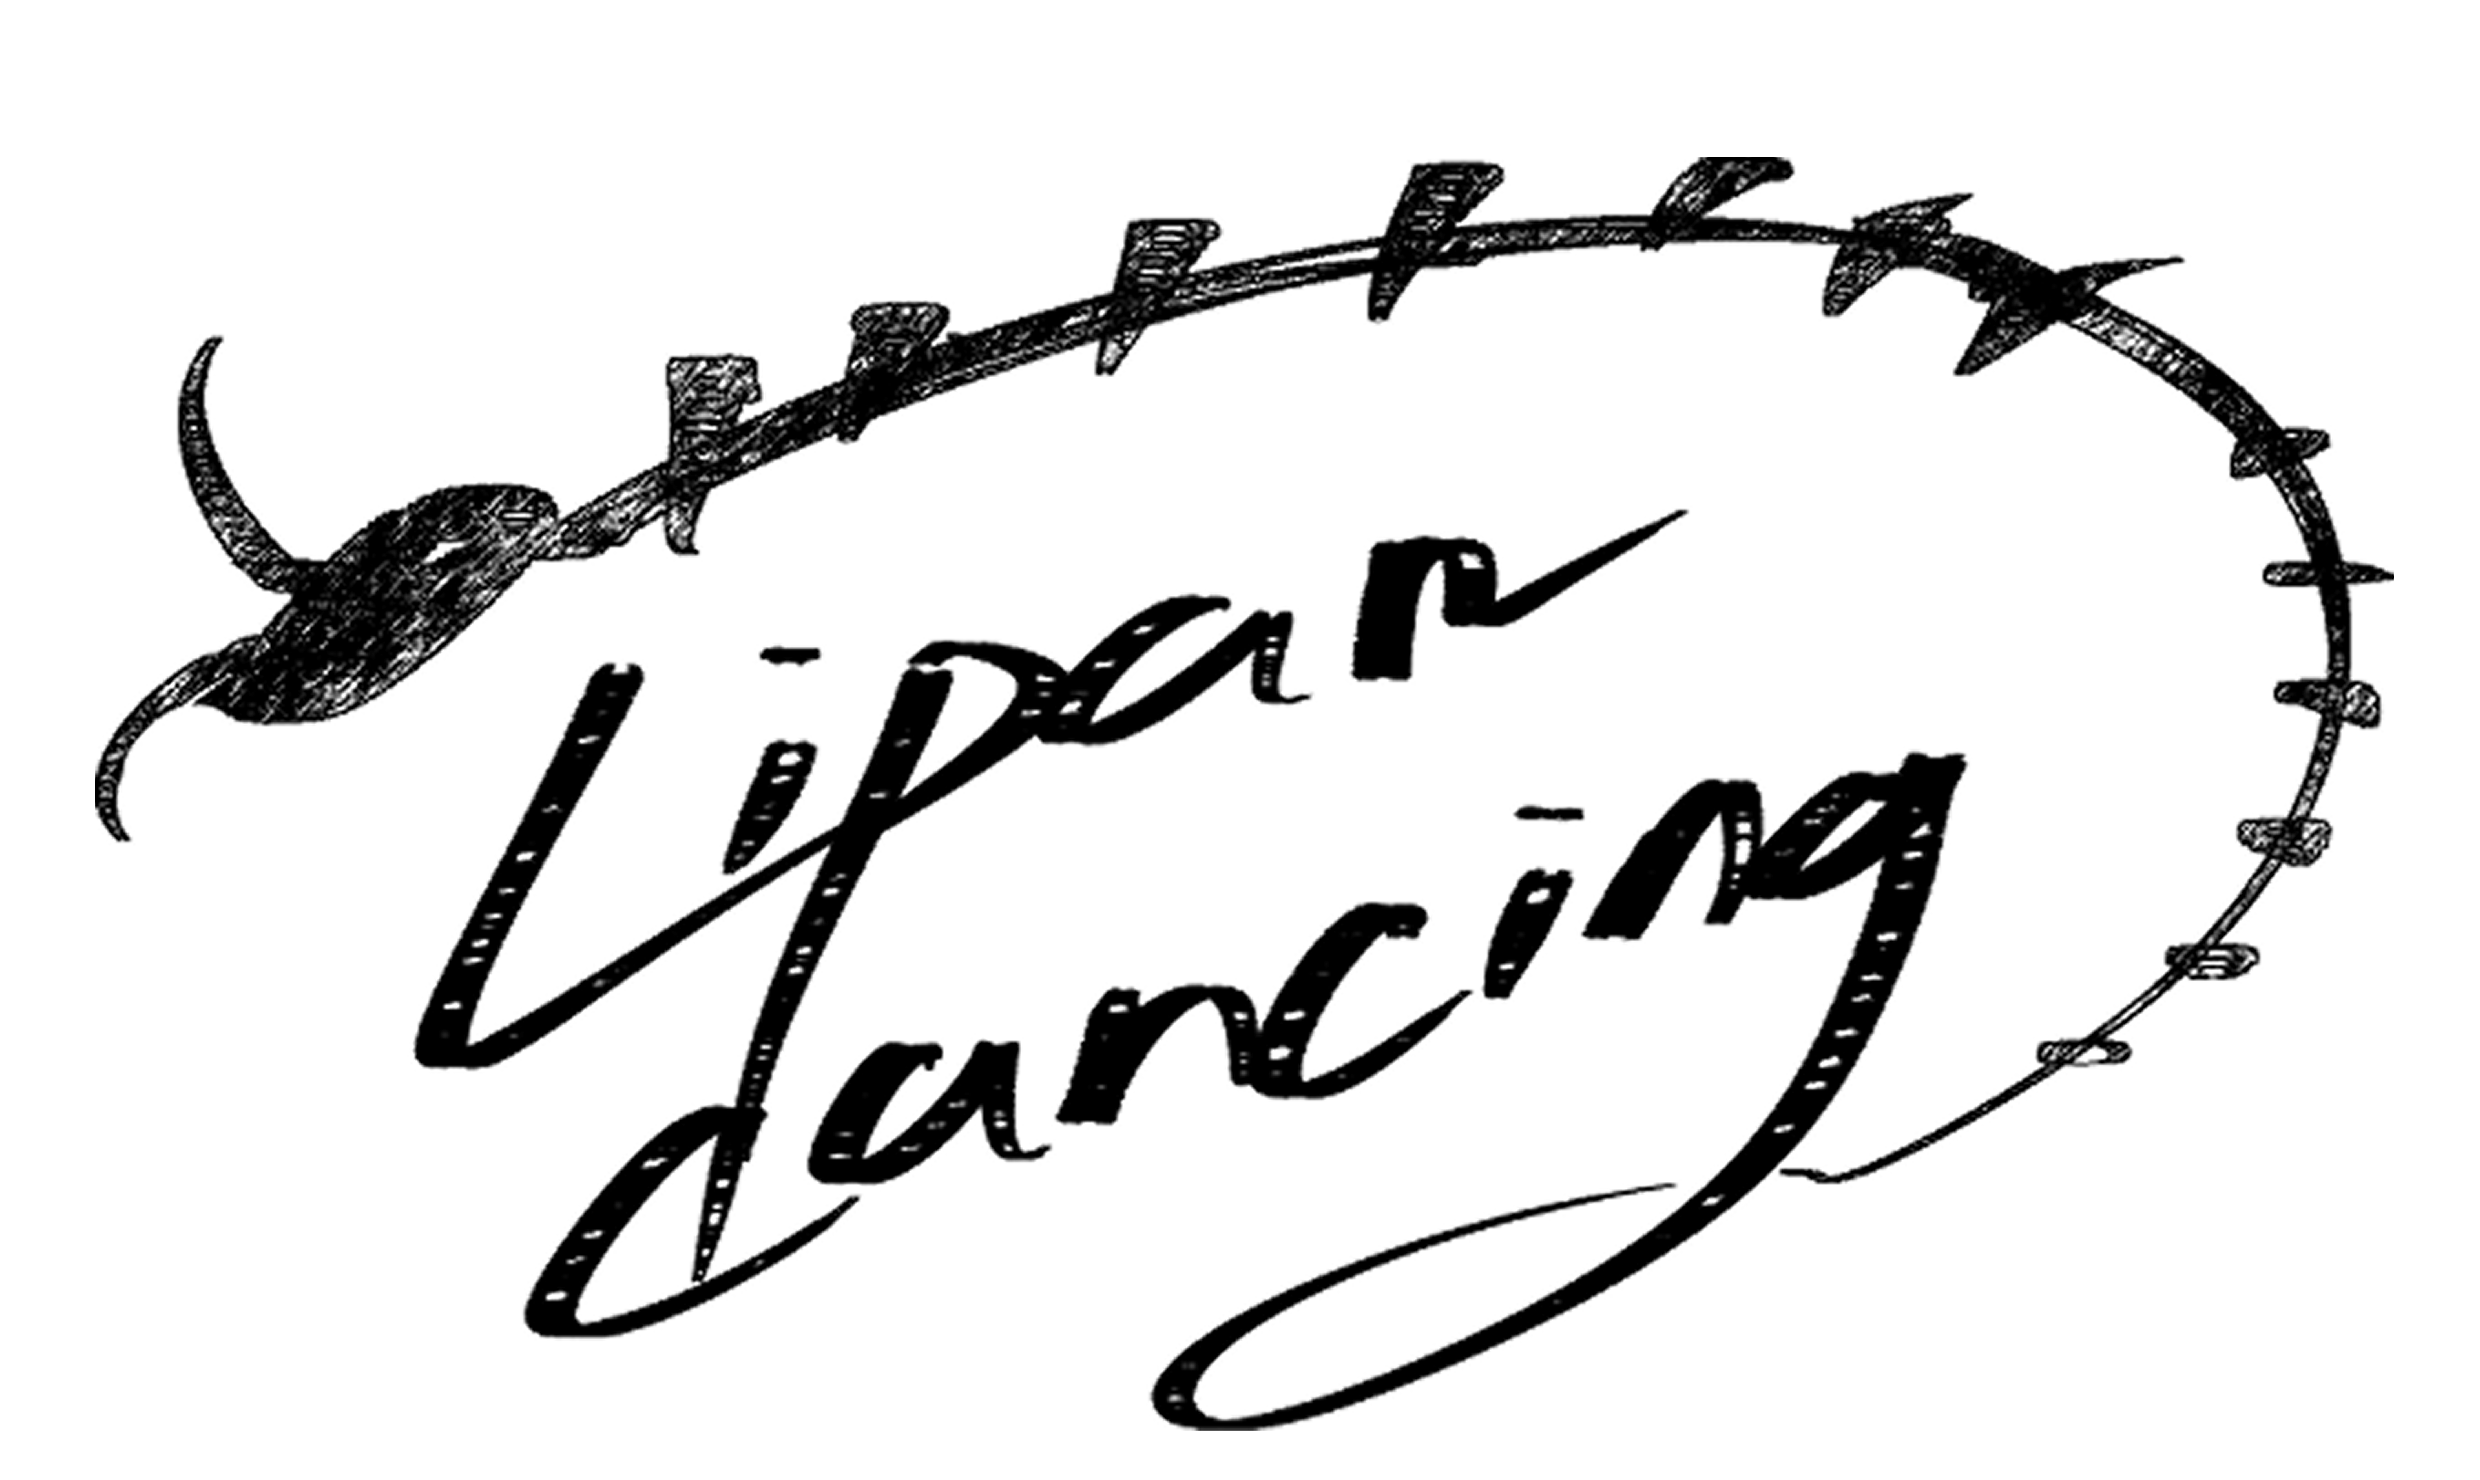 Lipan
dancing